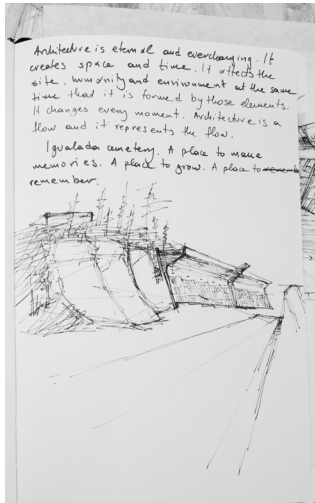 Architecture is eternal and everchanging. It
creates space and time. It affects the
site, humanity and environment at the same
time that it is formed by those elements.
It changes every moment. Architecture is a
flow and it represents the flow.
Igualada cemetery. A place to make
memories. A place to grow. A place to rememb
remember.